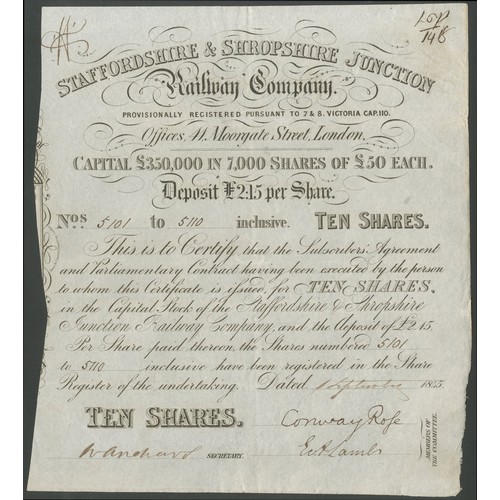 148
STAFFORDSHIRE & SHROPSHIRE JUNCTION
Railway Company.
PROVISIONALLY REGISTERED PURSUANT TO 7 & 8. VICTORIA CAP. 110.
Offices, 41, Moorgate Street, London.
CAPITAL £350,000 IN 7,000 SHARES OF £50 EACH.
Deposit £2:15 per Share.
Nos 5101 to 5110 inclusive. TEN SHARES.
This is to Certify that the Subscribers' Agreement
and Parliamentary Contract having been executed by the person
to whom this Certificate is issued, for TEN SHARES.
in the Capital Stock of the Staffordshire & Shropshire
Junction Railway Company, and the Deposit of £2.15
Per Share paid thereon, the Shares numbered 5101
to 5110 inclusive have been registered in the Share
Register of the undertaking. Dated September 1845
TEN SHARES. Conway Rose
SECRETARY. Lamb
MEMBERS OF
THE COMMITTEE.